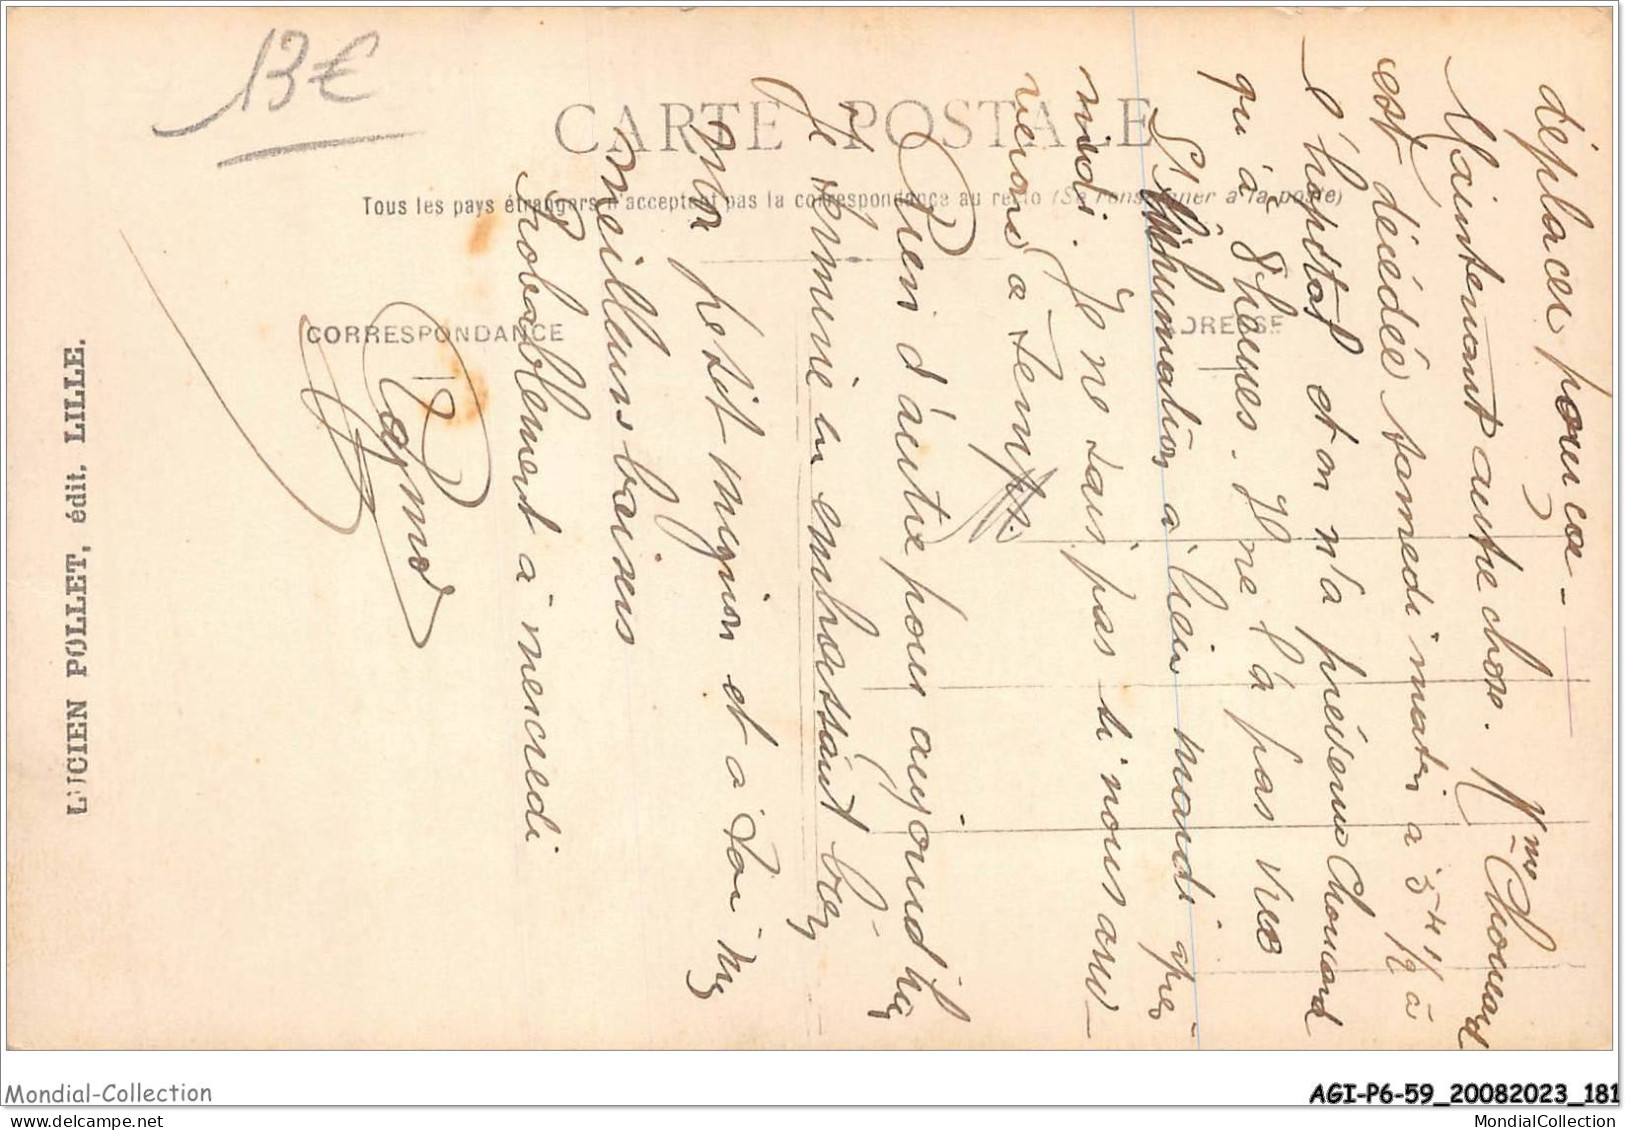 13€
CARTE POSTALE
Tous les pays étrangers n'acceptent pas la correspondance au recto (Se renseigner à la poste)
CORRESPONDANCE
ADRESSE
LUCIEN POLLET, édit. LILLE.
déplacer pour ça -
Maintenant autre chose. Mme Chouard
est décédée samedi matin à 5h 1/2 à
l'hopital et on n'a prévenu Chouard
qu'à 8 heures. Il ne l'a pas vue
L'inhumation a lieu mardi après
midi. Je ne sais pas si nous arri-
verons à temps.
Rien d'autre pour aujourd'hui
Je termine en embrassant bien
mon petit mignon et à toi mes
meilleurs baisers
Probablement à mercredi
Mondial-Collection
AGI-P6-59_20082023_181
MondialCollection